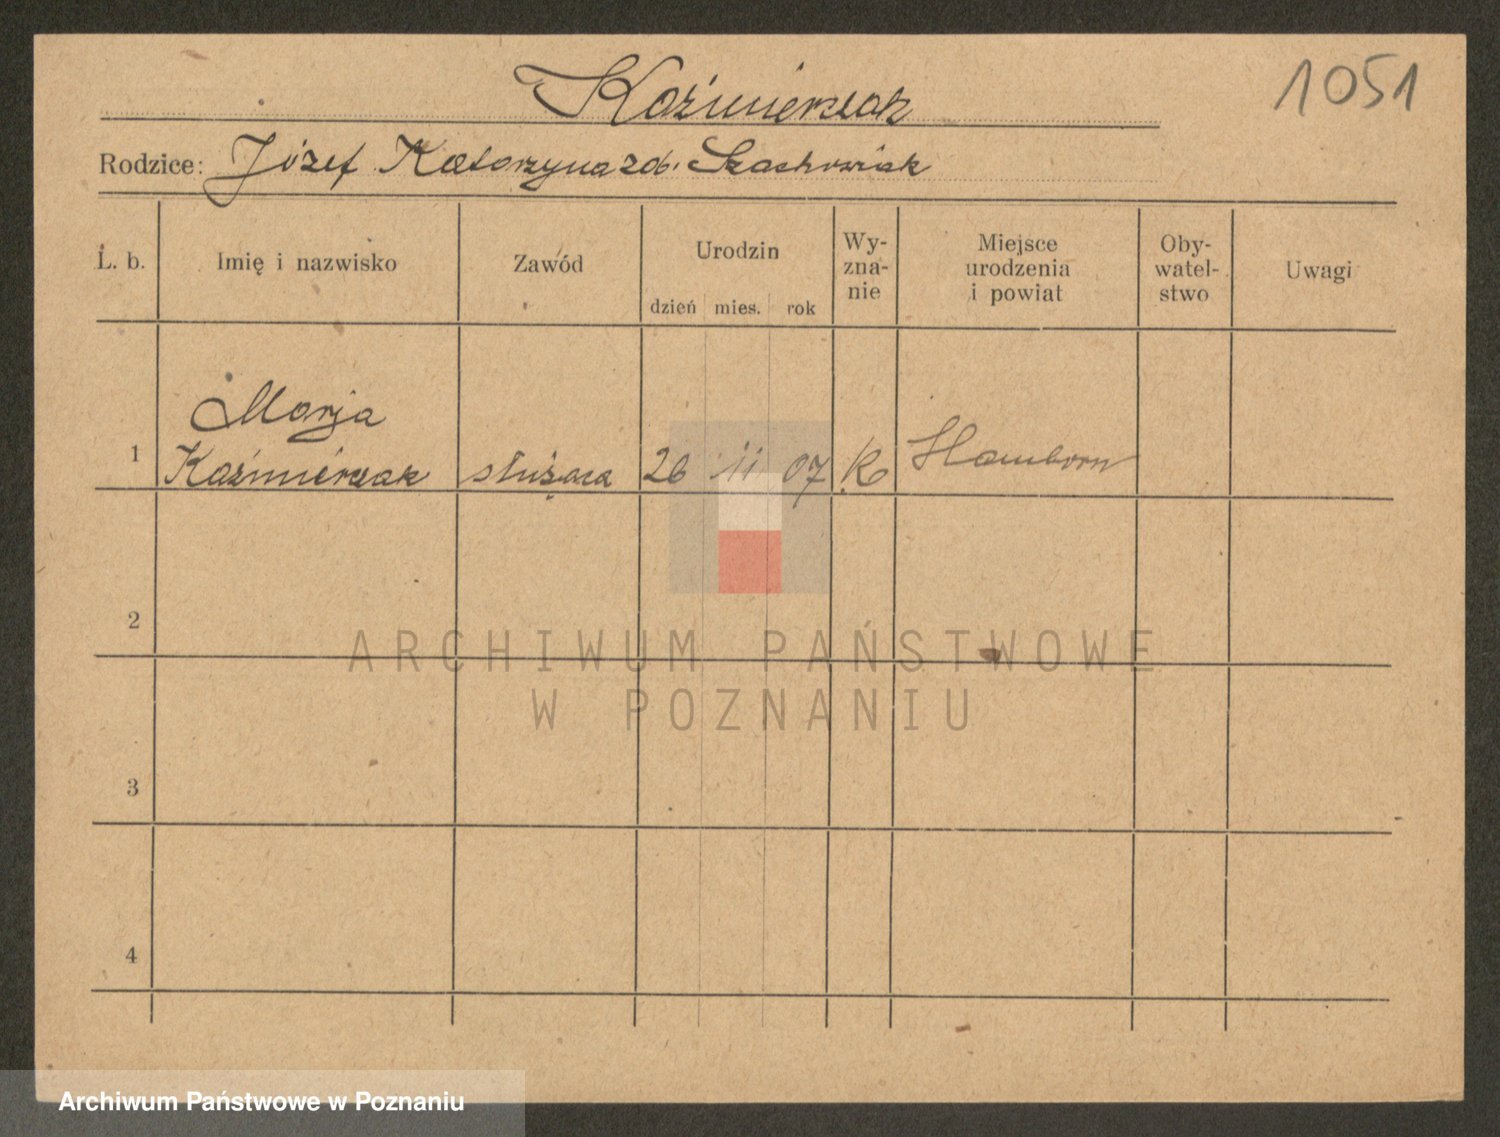 Kaźmierczak
1051
Rodzice: Józef Katarzyna z d. Szachowiak
L. b. Imię i nazwisko Zawód Urodzin dzień mies. rok Wy-zna-nie Miejsce urodzenia i powiat Oby-watel-stwo Uwagi
Marja
1 Kaźmierczak służąca 26 11 07 K Hamborn
2
3
4
ARCHIWUM PAŃSTWOWE
W POZNANIU
Archiwum Państwowe w Poznaniu